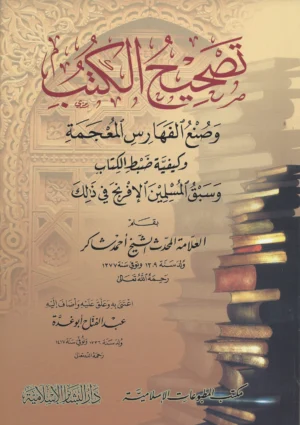 تصحيح الكتب
وصنع الفهارس المعجمة
وكيفية ضبط الكتاب
وسبق المسلمين الإفرنج في ذلك
بقلم
العلامة المحدث الشيخ أحمد شاكر
ولد سنة ١٣٠٩ وتوفي سنة ١٣٧٧
رحمه الله تعالى
اعتنى به وعلق عليه وأضاف إليه
عبد الفتاح أبو غدة
ولد سنة ١٣٣٦ وتوفي سنة ١٤١٧
رحمه الله تعالى
مكتب المطبوعات الإسلامية
دار البشائر الإسلامية